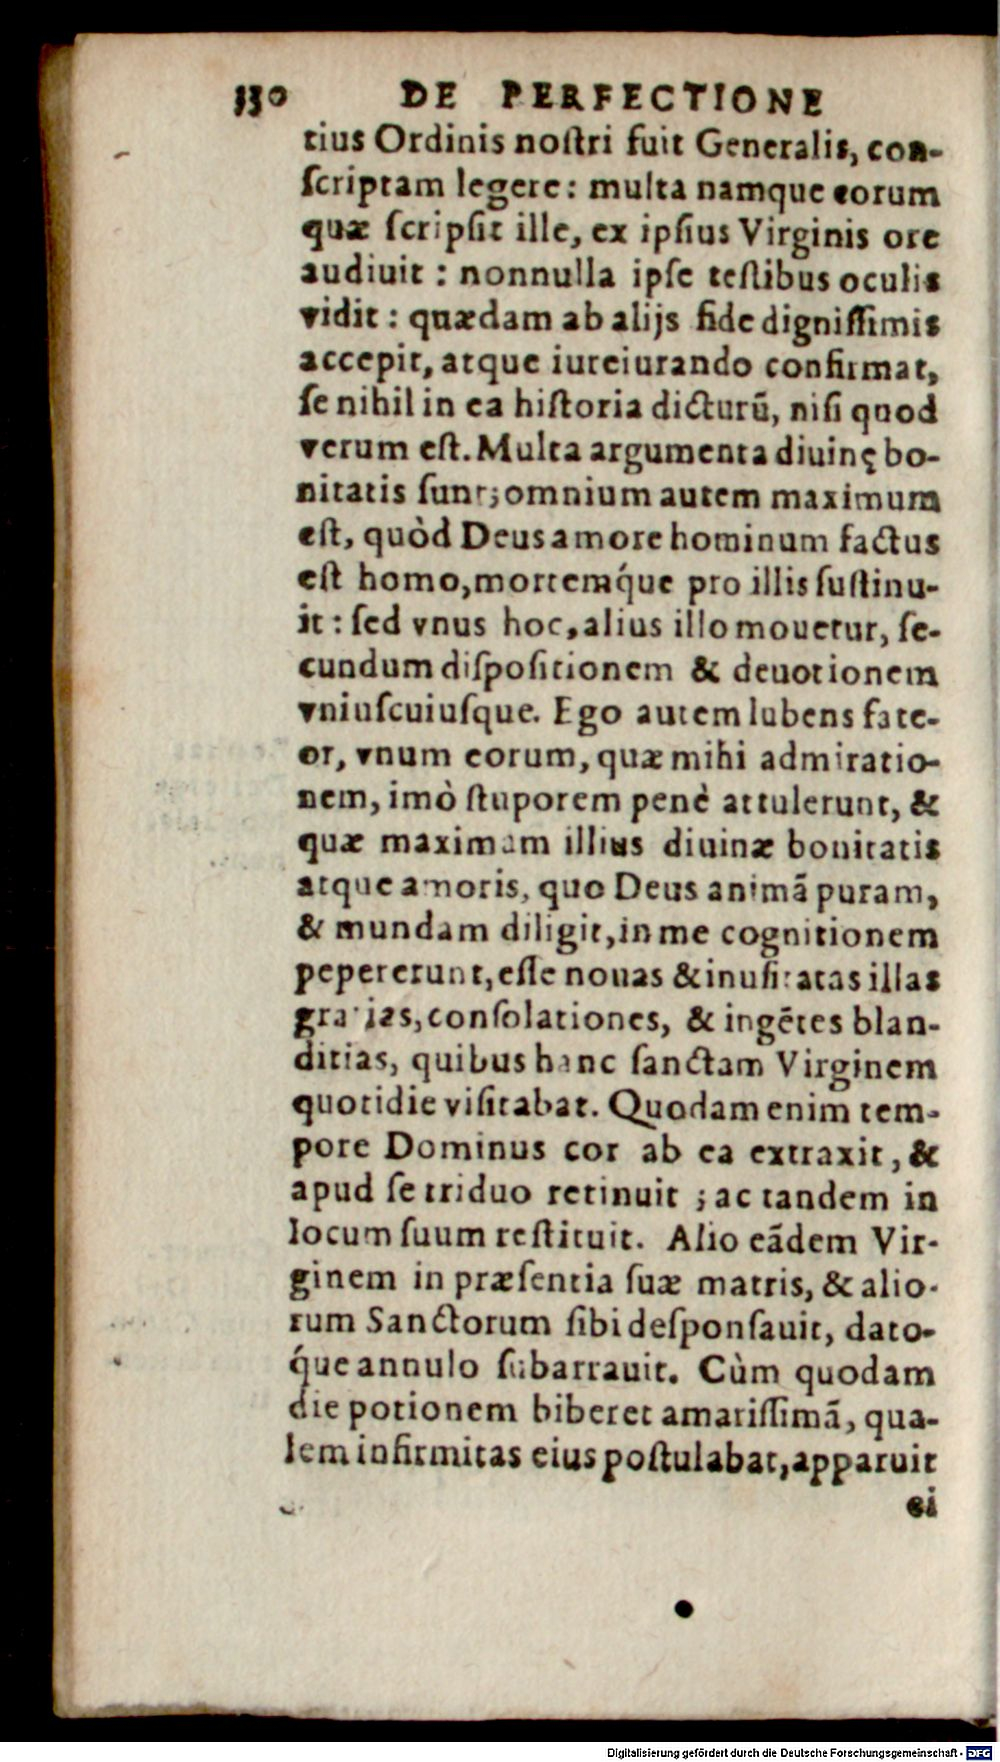 330 DE PERFECTIONE
tius Ordinis noſtri fuit Generalis, con-
ſcriptam legere: multa namque eorum
quæ ſcripſit ille, ex ipſius Virginis ore
audiuit : nonnulla ipſe teſtibus oculis
vidit : quædam ab alijs fide digniſſimis
accepit, atque iureiurando confirmat,
ſe nihil in ea hiſtoria dicturū, niſi quod
verum eſt. Multa argumenta diuinę bo-
nitatis ſunt; omnium autem maximum
eſt, quòd Deus amore hominum factus
eſt homo, mortemq́ue pro illis ſuſtinu-
it : ſed vnus hoc, alius illo mouetur, ſe-
cundum diſpoſitionem & deuotionem
vniuſcuiuſque. Ego autem lubens fate-
or, vnum eorum, quæ mihi admiratio-
nem, imò ſtuporem penè attulerunt, &
quæ maximam illius diuinæ bonitatis
atque amoris, quo Deus animā puram,
& mundam diligit, in me cognitionem
pepererunt, eſſe nouas & inuſitatas illas
gratias, conſolationes, & ingētes blan-
ditias, quibus hanc ſanctam Virginem
quotidie viſitabat. Quodam enim tem-
pore Dominus cor ab ea extraxit, &
apud ſe triduo retinuit ; ac tandem in
locum ſuum reſtituit. Alio eādem Vir-
ginem in præſentia ſuæ matris, & alio-
rum Sanctorum ſibi deſponſauit, dato-
q́ue annulo ſubarrauit. Cùm quodam
die potionem biberet amariſſimā, qua-
lem infirmitas eius poſtulabat, apparuit
ei
Digitalisierung gefördert durch die Deutsche Forschungsgemeinschaft - DFG